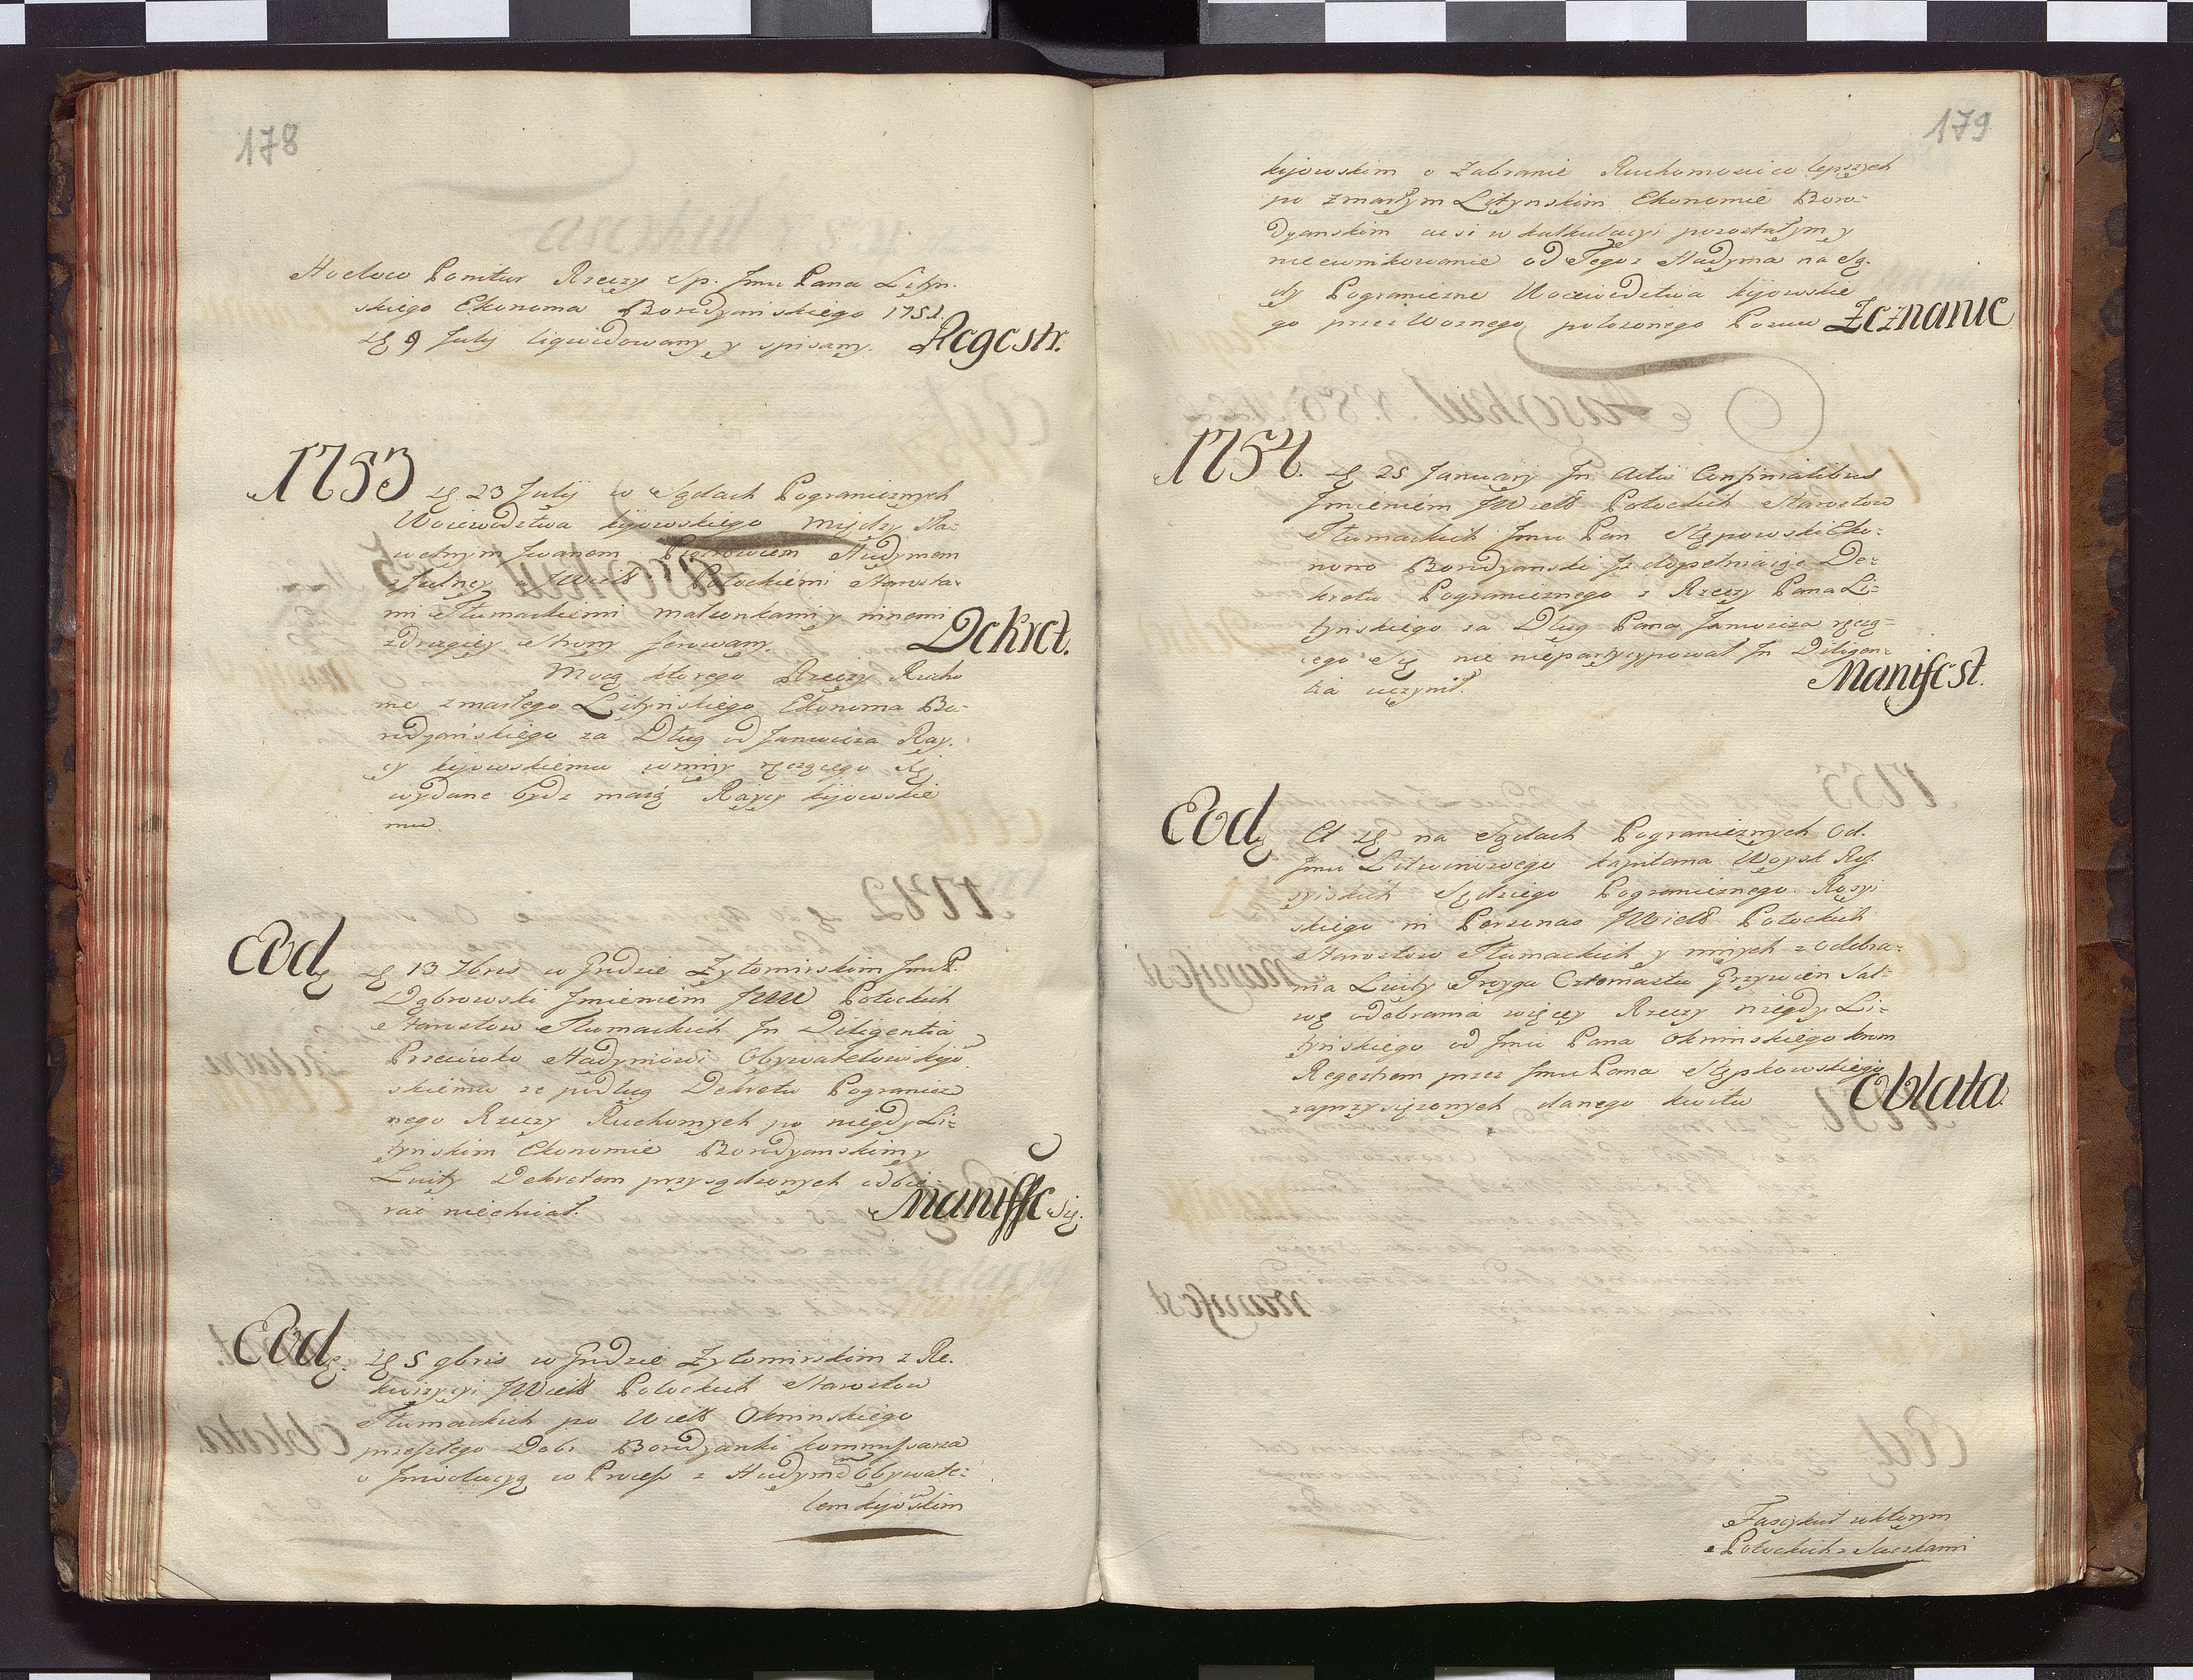 178
Hocloco Ponitur Rzeczy Sp. Jmu Pana Lityn.
skiego Ekonoma Borodyanskiego 1752.
9 Julij ligwidowany y spisany. Regestr.
1753 23 Julij w Sądach Pogranicznych
Woiewodztwa kijowskiego między Sła:
wetnym Jwanem Piotrowiem Hudymem
a Wiel Potockiemi Starosta:
mi Tłumackiemi małzonkami y innemi
zdrugiey strony ferowany. Dekret.
Mocą ktorego Rzeczy Rucho
me zmarłego Lityńskiego Ekonoma Bo:
rodyańskiego za Dług od Janowicza Ray.
cy kijowskiemu winny ręczącego się
wydane bydz maią Raycy kijowskie
mu
Eod 13 7bris w Grodzie Zytomirskim Jmć P.
Dąbrowski Jmieniem JWW Potockich
Starostow Tłumackich Jn Diligentia
Przeciwko Hudymowi Obywatelowi kijo
skiemu ze podług Dekretu Pogranicz
nego Rzeczy Ruchomych po niegdy Li:
tyńskim Ekonomie Borodyanskim y
Lwity Dekretem przysądzonych odbie
rać niechciał. Maniffe się.
Eod. 5 9bris w Grodzie Zytomirskim z Re.
kwizycyi JWiel Potockich Starostow
Tłumackich po Wiel Okninskiego
przeszłego Dobr Borodzanki kommissarza
o Jnwolucyą w Process z Hudymem Obywate:
lem kijowskim
179
kijowskim o Zabranie Ruchomosci co lepszych
po zmarłym Lityńskim Ekonomie Boro:
dyanskim w kalkulacyi pozostałym y
nieewinkowanie od Tegoz Hudyma na Są.
dy Pograniczne Wocewodztwa kijowskie
go przez Woznego polozonego Pozwu Zeznanie
1754. 25 January Jn Actis Confinialibus
Jmieniem JWiel Potockich Starostow
Tłumackich Jmu Pan Stępowski Eko:
nomo Borodyanski Jz dopełniaiąc De:
kretu Pogranicznego z Rzeczy Pana Li:
tynskiego za Dług Pana Janowicza ręczą:
cego Się nie niepartycypował Jn Diligen:
tia uczynił. Manifest.
Eod na Sądach Pogranicznych Od.
Jmu Litwinowego kapitana Woysk Ros:
syiskich Sędziego Pogranicznego Rosyi
skiego in Personas JWiel Potockich
Starostow Tłumackich y innych z odebra:
nia Lwity Troyga Człomastu Grzywien Sal:
wę odebrania więcey Rzeczy niegdy Li:
tynskiego od Jmu Pana Okninskiego
Regestrem przez Jmu Pana Stępkowskiego
zaprzysięzonych danego kwitu Oblata.
Fascykuł wktorym
Potockich z Saczkami